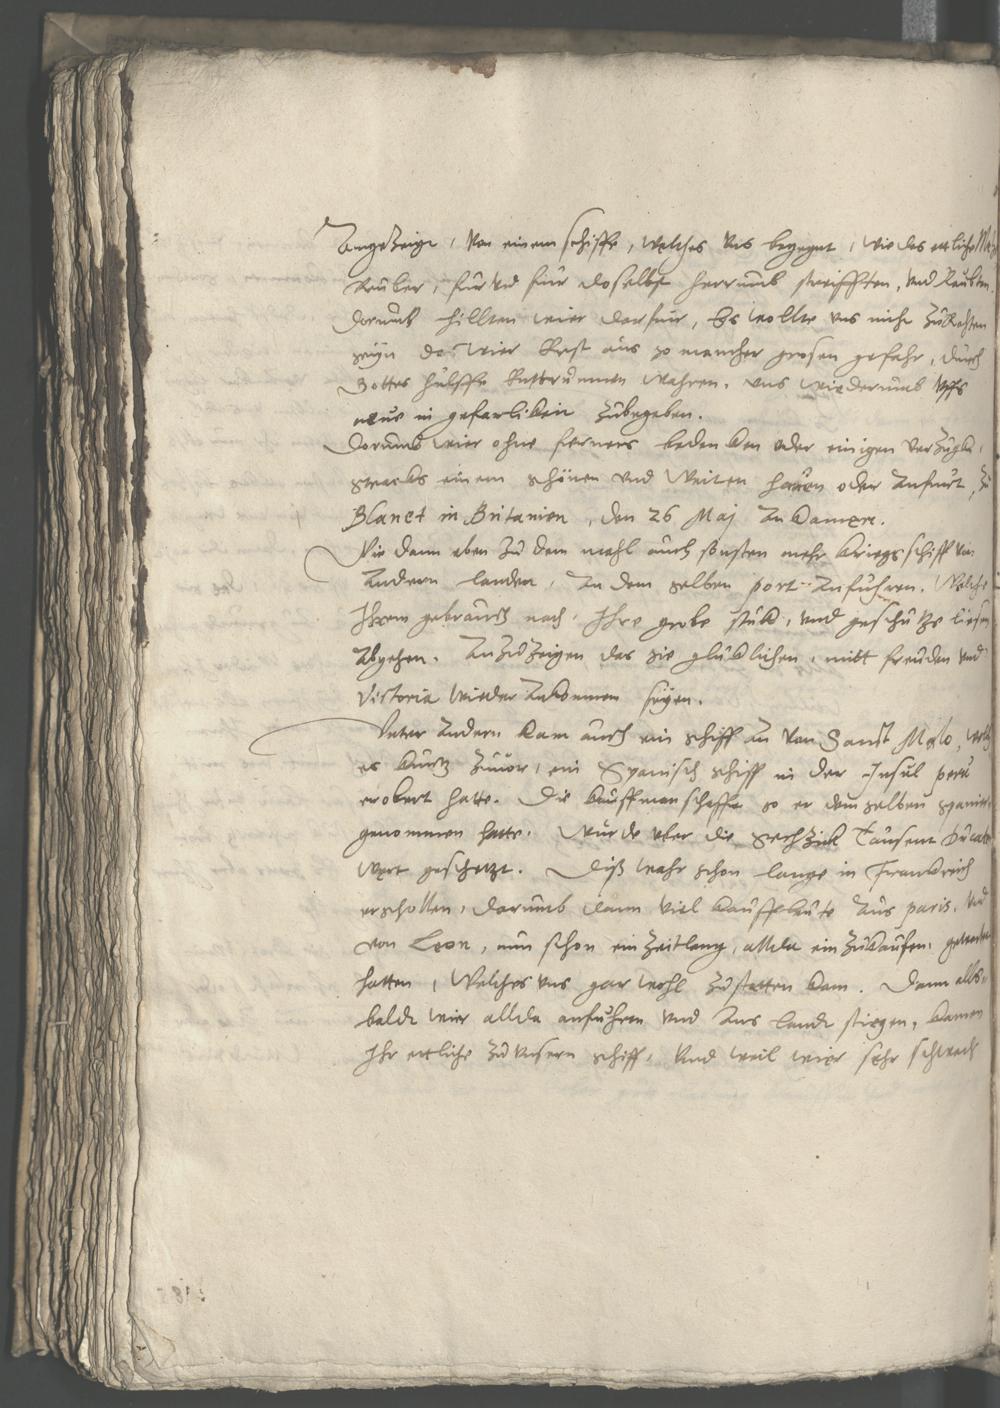 Angezeigt, Von einem schiffe, welches vns begegnet, wie das ettliche
Reuber, für vnd für doselbst herrumb streifften, vnd Raubten.
Dorumb hillten wier darfuir, Es wollte vns nicht zu Rahten
seyn das wier Erst aus so mancher grosen gefahr, durch
Gottes hülffe Entrunnen wahren, vns wiederumb vffs
neue in gefarlikein zubegeben.
Dorumb wier ohne ferners bedencken oder einigen verzugk,
stracks einem schönen vnd Weiten haven oder Anfurt, zu
Blanet in Britanien, den 26 Maj An kamen.
Wie dann eben zu dem mahl auch sonsten mehr kriegs schiff von
Andern landen, An dem selben port Anfuhren. Welche
Ihrem gebrauch nach, Ihre grobe stük, vnd geschütze liesen
Abgehen. Anzuzeigen das sie glüklichen, mitt freuden vnd
Victoria wieder Ankommen seyen.
Vnter Andern kam auch ein schiff an von Sanct Malo,
es kurtz zuvor, ein Spanisch schiff in der Insul peru
erobert hatte. Die kauffmanschafft so er dem selben
genommen hatte. Wurde vber die sechzick Tausent Ducaten
wert geschetzt. Diß wahr schon lange in Franckreich
erschollen, darumb dann viel kauffleute Aus paris, vnd
von Leon, nun schon ein zeitlang, allda einzukaufen,
hatten, Welches vns gar wohl zustatten kam. Dann alls-
balde wier allda anfuhren vnd Ans lande stiegen, kamen
Ihr ettliche zu vnsern schiff, Vnd weil wier sehr schwach